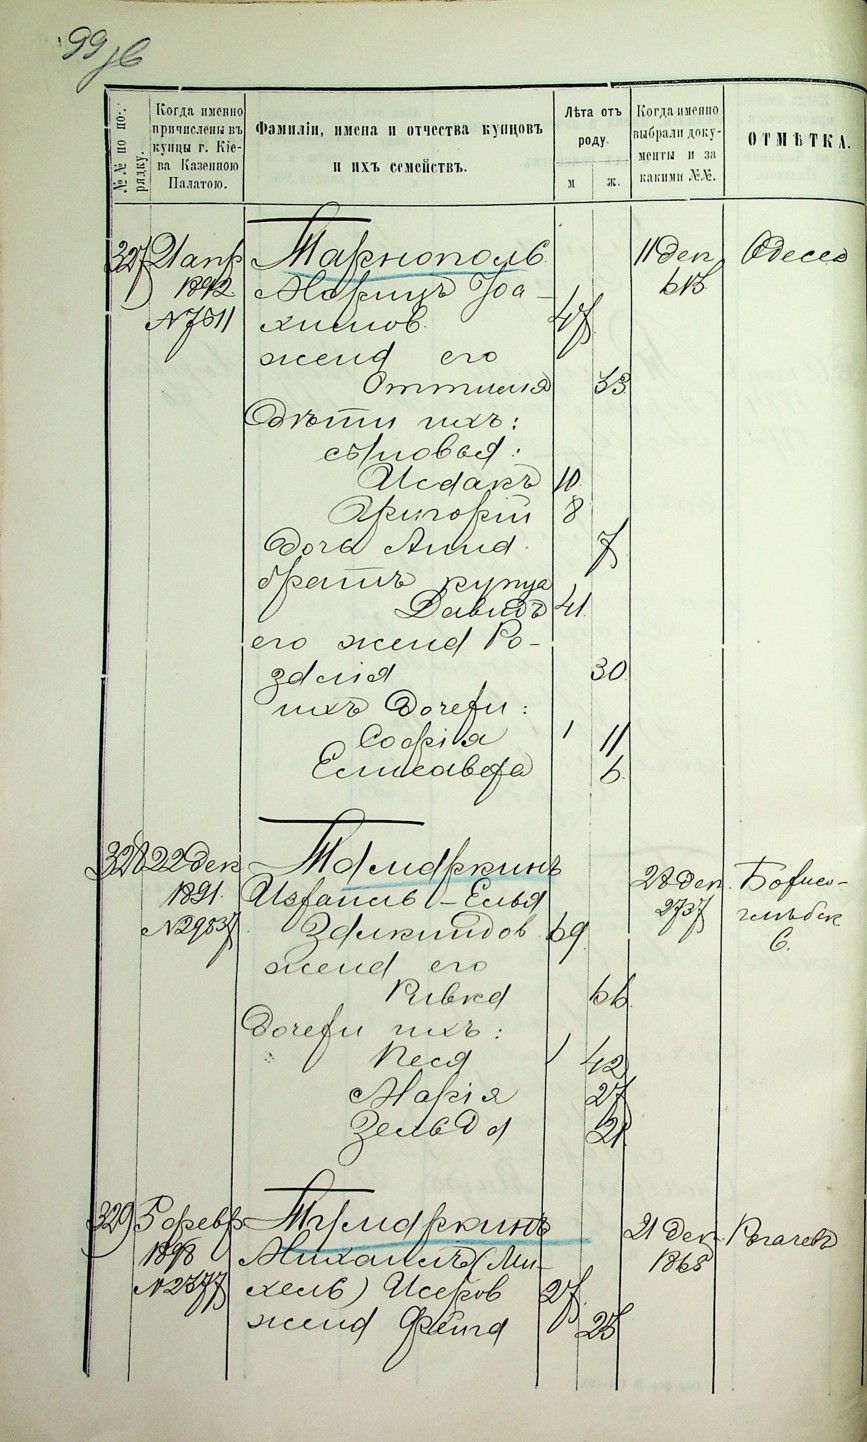 99 об
№№ по по-
рядку.
Когда именно
причислены въ
купцы г. Кіе-
ва Казенною
Палатою.
Фамиліи, имена и отчества купцовъ
и ихъ семействъ.
Лѣта отъ
роду.
м
ж.
Когда именно
выбрали доку-
менты и за
какими №№.
ОТМѢТКА.
327) 21 апр Тарнополь 11 Дек Одесса
1892 Морицъ Іоа-
613
№7511 химов 47
жена его
Оттилія 33
Дѣти ихъ:
сыновья:
Исаакъ 10
Григорій 8
Дочь Анна 7
братъ купца
Давидъ 41
его жена Ро-
залія 30
ихъ Дочери:
Софія 11
Елисавета 6
328) 22 Дек Тамаркинъ 28 Дек. Борисо-
1891 Израиль-Елья 2737 глѣбск
№29837 Залкиндов 69 С.
жена его
Ривка 66
Дочери ихъ:
Песя 42
Марія 27
Зельда 21
329) 5 февр Тумаркинъ 21 Дек Рогачевъ
1898 Михаилъ (Ми- 1865
№2377 хель) Исеров 27
жена Фейга 25